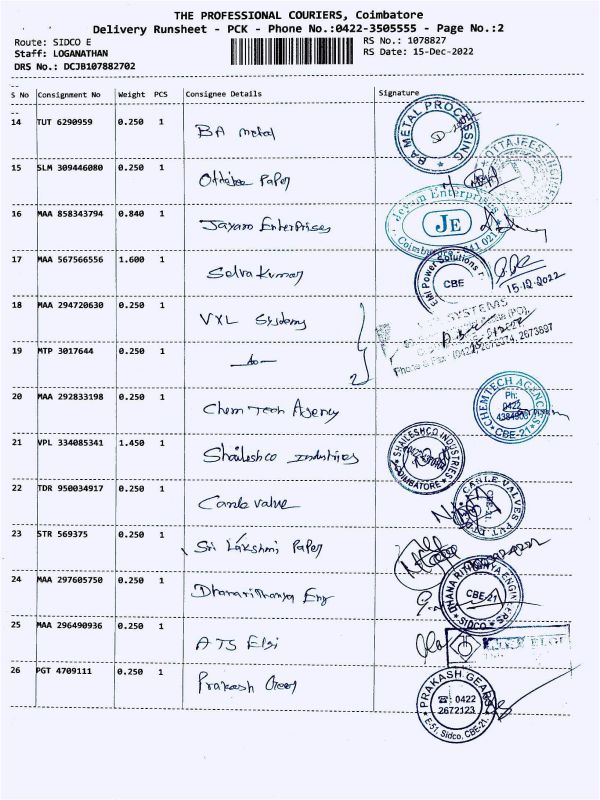 THE PROFESSIONAL COURIERS, Coimbatore
Delivery Runsheet - PCK - Phone No.:0422-3505555 - Page No.:2
Route: SIDCO E
RS No.: 1078827
Staff: LOGANATHAN
RS Date: 15-Dec-2022
DRS No.: DCJB107882702
S No Consignment No Weight PCS Consignee Details Signature
14 TUT 6290959 0.250 1 BA Metal
BA METAL PROCESSING
15 SLM 309446080 0.250 1 Ottajee Paper
OTTAJEES
16 MAA 858343794 0.840 1 Jayam Enterprises
Jeyam Enterprises
JE
Coimbatore - 641 021
17 MAA 567566556 1.600 1 Selvakumar
EMI Power Solutions
CBE
15.12.2022
18 MAA 294720630 0.250 1 VXL Systems
SYSTEMS
19 MTP 3017644 0.250 1 —do—
2
Phone & Fax : (0422) 2673897
20 MAA 292833198 0.250 1 Chem Tech Agency
CHEMTECH AGENCY
Ph:
0422
CBE-21
21 VPL 334085341 1.450 1 Shaileshco Industries
SHAILESHCO INDUSTRIES
COIMBATORE
22 TDR 950034917 0.250 1 Canle valve
CANLE VALVES PVT. LTD.
23 STR 569375 0.250 1 Sri Lakshmi Paper
24 MAA 297605750 0.250 1 Dhanarithanya Eng
DHANA RITHANYA ENGINEERS
CBE-21
SIDCO
25 MAA 296490936 0.250 1 ATS Elgi
26 PGT 4709111 0.250 1 Prakash Gears
PRAKASH GEARS
0422
2672123
E-51, Sidco, CBE-21.